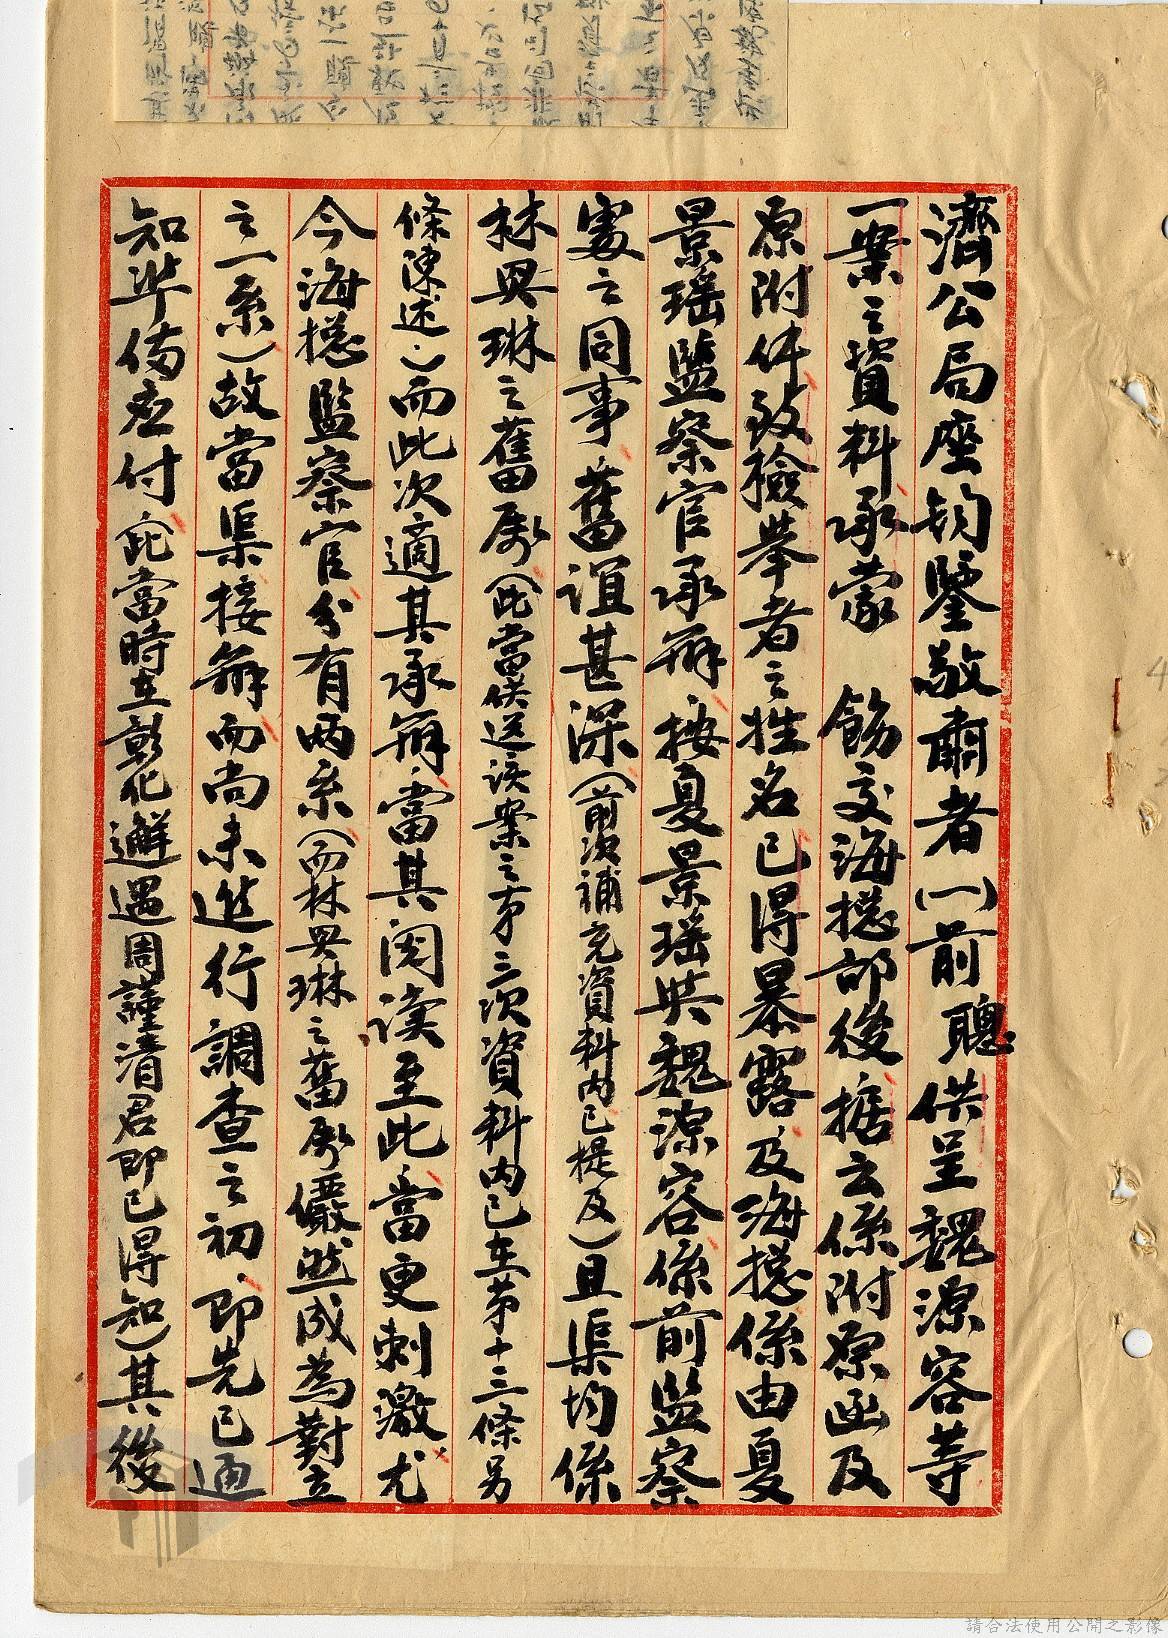 濟公局座鈞鑒敬肅者(一)前聰供呈魏源容等
一案之資料承蒙 飭交海總部後據云係附原函及
原附件致檢舉者之姓名已得暴露及海總係由夏
景瑤監察官承辦按夏景瑤與魏源容係前監察
處之同事舊誼甚深(前次補充資料內已提及)且渠均係
林興琳之舊屬(此當俟送該案之第三次資料內已在第十三條另
條陳述)而此次適其承辦當其閱讀至此當更刺激尤
今海總監察官分有兩系(而林興琳之舊屬儼然成為對立
之一系)故當渠接辦而尚未進行調查之初即先已通
知準備應付(此當時在彰化邂遇周謹清君即已得知)其後
請合法使用公開之影像